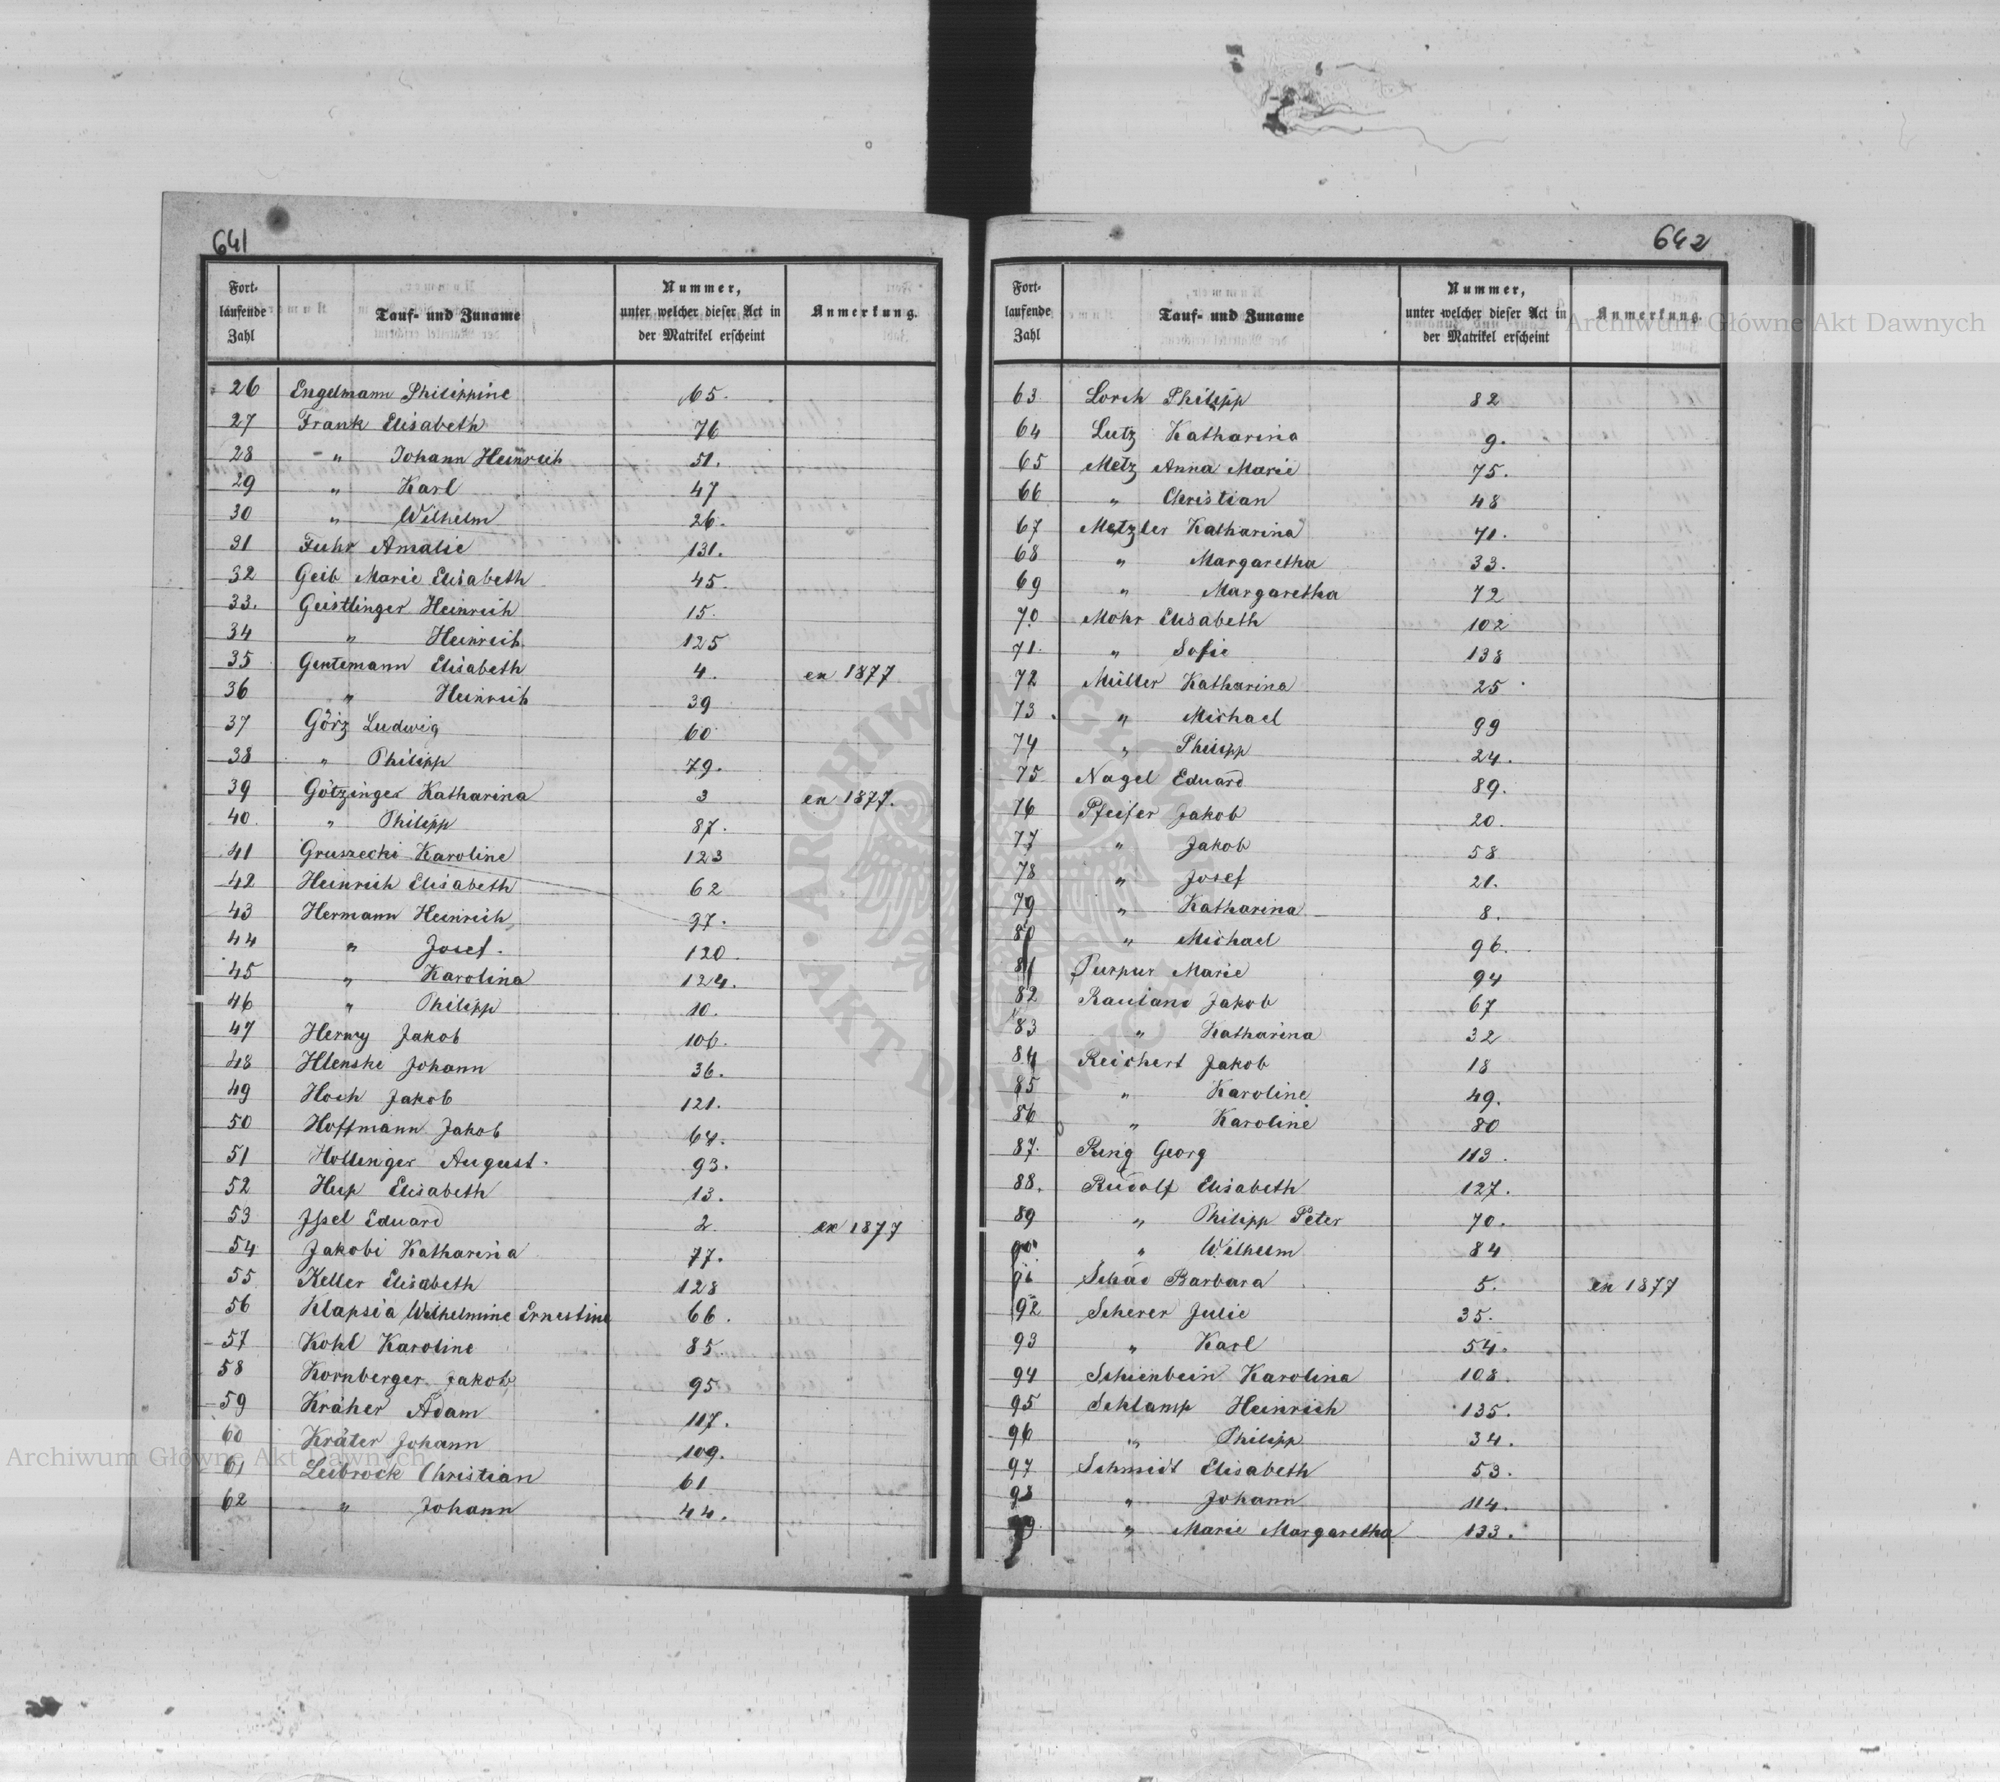 641
Fort-
laufende
Zahl
Tauf- und Zuname
Nummer,
unter welcher dieser Act in
der Matrikel erscheint
Anmerkung.
26 Engelmann Philippine 65.
27 Frank Elisabeth 76
28 " Johann Heinrich 51.
29 " Karl 47
30 " Wilhelm 26.
31 Fuhr Amalie 131.
32 Geib Marie Elisabeth 45.
33. Geistlinger Heinrich 15.
34 " Heinrich 125
35 Gentemann Elisabeth 4. ex 1877
36 " Heinrich 39
37 Görz Ludwig 60
38 " Philipp 79.
39 Götzinger Katharina 3 ex 1877.
40. " Philipp 87.
41 Gruszecki Karoline 123
42 Heinrich Elisabeth 62
43 Hermann Heinrich 97.
44 " Josef. 120.
45 " Karolina 124.
46 " Philipp 10.
47 Herwy Jakob 106.
48 Hlenski Johann 36.
49 Hoch Jakob 121.
50 Hoffmann Jakob 64.
51 Hollinger August. 93.
52 Hup Elisabeth 13.
53 Issel Eduard 2 ex 1877
54 Jakobi Katharina 77.
55 Keller Elisabeth 128
56 Klapsia Wilhelmine Ernestine 66.
57 Kohl Karoline 85.
58 Kornberger Jakob 95
59 Kräher Adam 117.
60 Kräter Johann 109.
61 Leibrock Christian 61
62 " Johann 44.
642
Fort-
laufende
Zahl
Tauf- und Zuname
Nummer,
unter welcher dieser Act in
der Matrikel erscheint
Anmerkung.
63 Lorch Philipp 82
64 Lutz Katharina 9.
65 Metz Anna Marie 75.
66 " Christian 48
67 Metzler Katharina 71.
68 " Margaretha 33.
69 " Margaretha 72
70 Mohr Elisabeth 102
71. " Sofie 138
72 Müller Katharina 25
73. " Michael 99
74 " Philipp 24.
75 Nagel Eduard 89.
76 Pfeifer Jakob 20.
77 " Jakob 58
78 " Josef 21.
79 " Katharina 8.
80 " Michael 96.
81 Purpur Marie 94
82 Rauland Jakob 67
83 " Katharina 32
84 Reichert Jakob 18
85 " Karoline 49.
86 " Karoline 80
87. Ring Georg 113.
88. Rudolf Elisabeth 127.
89 " Philipp Peter 70.
90 " Wilhelm 84
91 Schäd Barbara 5. ex 1877
92 Scherer Julie 35.
93 " Karl 54.
94 Schienbein Karolina 108.
95 Schlamp Heinrich 135.
96 " Philipp 34.
97 Schmidt Elisabeth 53.
98 " Johann 114.
99 " Marie Margaretha 133.
Archiwum Główne Akt Dawnych
Archiwum Główne Akt Dawnych
ARCHIWUM GŁÓWNE • AKT DAWNYCH •